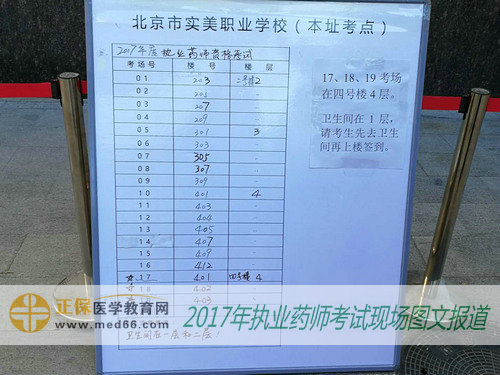 北京市实美职业学校（本址考点）
2017年度执业药师资格考试
考场号 楼号 楼层
01 203 二号楼2
02 205 "
03 207 "
04 209 "
05 301 3
06 303 "
07 305 "
08 307 "
09 309 "
10 401 4
11 403 "
12 404 "
13 405 "
14 407 "
15 409 "
16 412 "
17 401 四号楼 4
18 402
403
卫生间在一层和二层！
17、18、19考场
在四号楼4层。
卫生间在 1 层，
请考生先去卫生
间再上楼签到。
正保医学教育网
www.med66.com
2017年执业药师考试现场图文报道